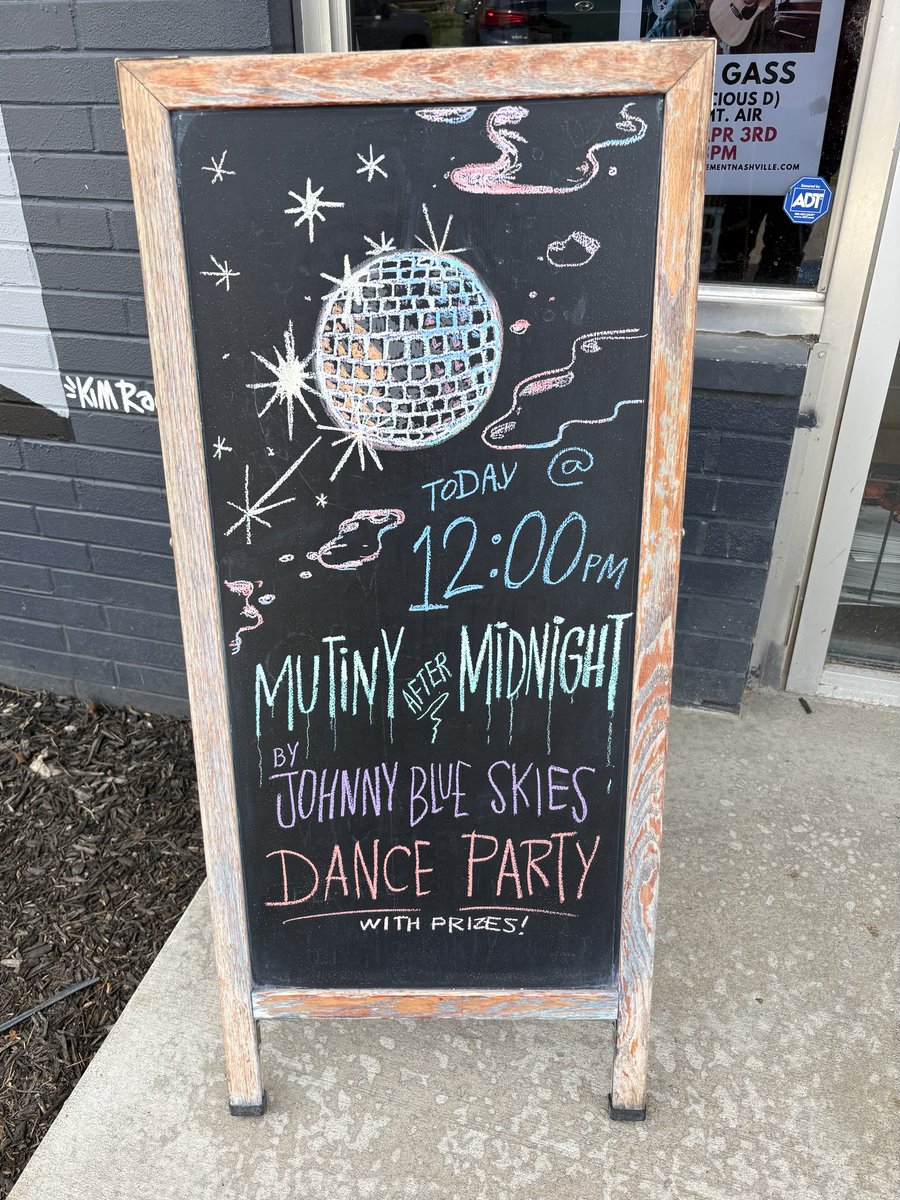 GASS
CIOUS D)
MT. AIR
APR 3RD
8PM
EMENTNASHVILLE.COM
Secured by
ADT
KiM Ra
TODAY @
12:00PM
MUTiNY AFTER MiDNiGHT
BY
JOHNNY BLUE SKIES
DANCE PARTY
WITH PRIZES!